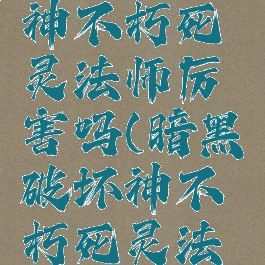 神不朽死
灵法师厉
害吗(暗黑
破坏神不
朽死灵法